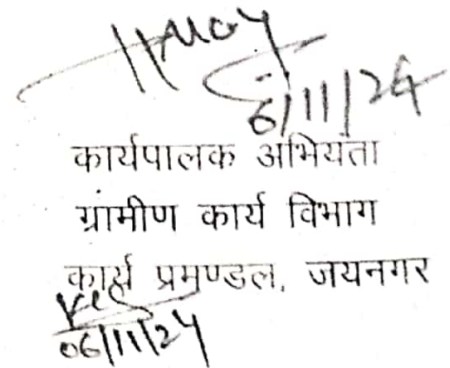 6/11/24
कार्यपालक अभियंता
ग्रामीण कार्य विभाग
कार्य प्रमण्डल, जयनगर
06/11/24